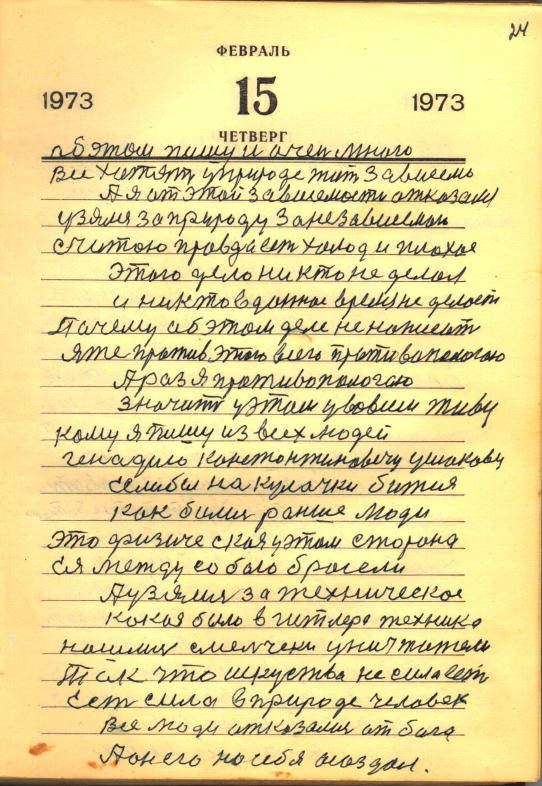 24
ФЕВРАЛЬ
1973 15 1973
ЧЕТВЕРГ
об этом пишу и очен много
Все хотят уприроде жит зависемо
А я от этой зависемости отказался
узялся за природу занезависемою
считою правда ест холод и плохое
этого дело никто не делол
и никто вданное время не делоет
Почему об этом деле не написат
я же против этого всего противапологою
А раз я противопологою
значит уэтом увовсем живу
кому я пишу из всех людей
генадию константиновичу ушакову
если бы на кулачки бится
как бился ранше люди
это физическоя уэтом сторона
ся между собою бросели
А узялися за техническое
какоя было в гитлера техника
нашими смелчеки уничтажели
Так что искуства не сила ест
Ест сила в природе человек
Все люди отказался от бога
А он его на себя создал.